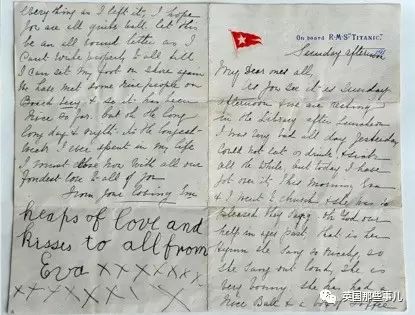 On board R.M.S "TITANIC."
Sunday afternoon
My Dear ones all,
As you see it is Sunday
afternoon & we are resting
in the Library after Luncheon
I was very bad all day yesterday
could not eat or drink & sick
all the while, but today I have
got over it, This morning Eva
& I went Church & she was so
pleased they sang Oh God our
help in ages past that is her
Hymn she sang so nicely, so
she sang out loud, she is
very bonny. she has had a
nice Ball & a box of Toffee
everything as I left it, I hope
you are all quite well. let this
be an all round letter as I
Can't write properly to all till
I can set my foot on shore again
We have met some nice people on
Board Lucy & so it has been
nice so far. but oh the long
long days & nights its the longest
Break I ever spent in my life
I must close now with all our
fondest Love to all of you
From your loving
heaps of love and
kisses to all from
Eva XXXXXXX
XXXXXXXXX
英国那些事儿